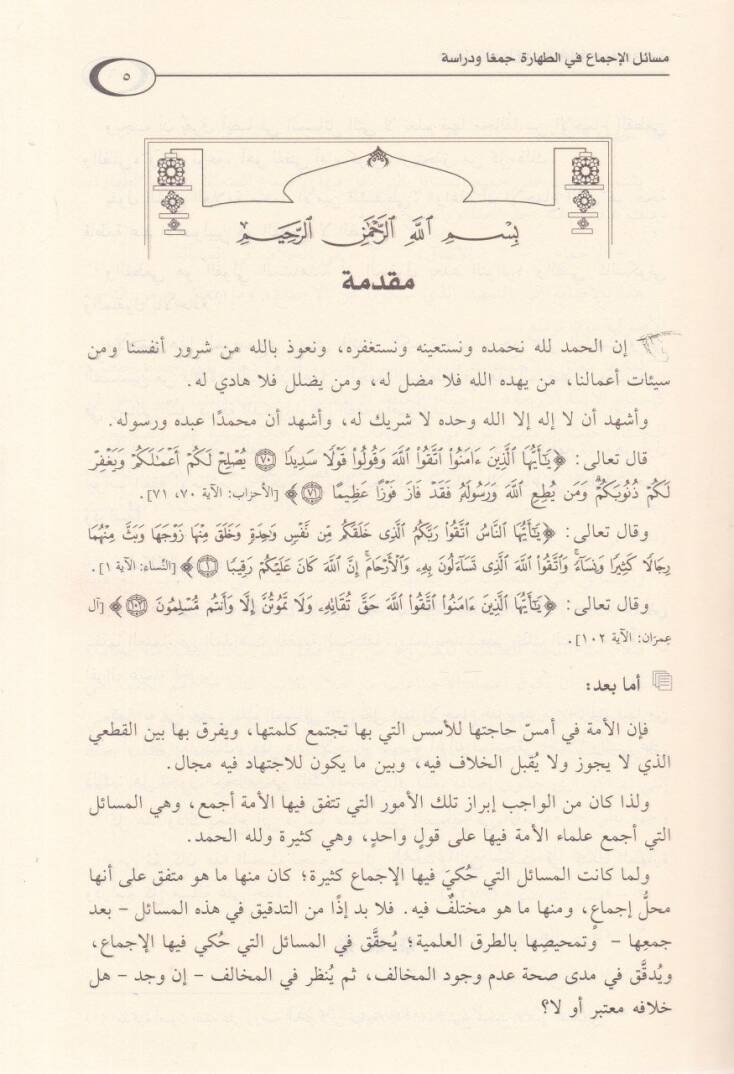 مسائل الإجماع في الطهارة جمعًا ودراسة
٥
بِسْمِ اللَّهِ الرَّحْمَٰنِ الرَّحِيمِ
مقدمة
إن الحمد لله نحمده ونستعينه ونستغفره، ونعوذ بالله من شرور أنفسنا ومن
سيئات أعمالنا، من يهده الله فلا مضل له، ومن يضلل فلا هادي له.
وأشهد أن لا إله إلا الله وحده لا شريك له، وأشهد أن محمدًا عبده ورسوله.
قال تعالى: ﴿يَٰٓأَيُّهَا ٱلَّذِينَ ءَامَنُواْ ٱتَّقُواْ ٱللَّهَ وَقُولُواْ قَوْلًا سَدِيدًا ۝٧٠ يُصْلِحْ لَكُمْ أَعْمَٰلَكُمْ وَيَغْفِرْ
لَكُمْ ذُنُوبَكُمْۗ وَمَن يُطِعِ ٱللَّهَ وَرَسُولَهُۥ فَقَدْ فَازَ فَوْزًا عَظِيمًا ۝٧١﴾ [الأحزاب: الآية ٧٠، ٧١].
وقال تعالى: ﴿يَٰٓأَيُّهَا ٱلنَّاسُ ٱتَّقُواْ رَبَّكُمُ ٱلَّذِى خَلَقَكُم مِّن نَّفْسٍ وَٰحِدَةٍ وَخَلَقَ مِنْهَا زَوْجَهَا وَبَثَّ مِنْهُمَا
رِجَالًا كَثِيرًا وَنِسَآءًۚ وَٱتَّقُواْ ٱللَّهَ ٱلَّذِى تَسَآءَلُونَ بِهِۦ وَٱلْأَرْحَامَۚ إِنَّ ٱللَّهَ كَانَ عَلَيْكُمْ رَقِيبًا ۝١﴾ [النِّساء: الآية ١].
وقال تعالى: ﴿يَٰٓأَيُّهَا ٱلَّذِينَ ءَامَنُواْ ٱتَّقُواْ ٱللَّهَ حَقَّ تُقَاتِهِۦ وَلَا تَمُوتُنَّ إِلَّا وَأَنتُم مُّسْلِمُونَ ۝١٠٢﴾ [آل
عِمرَان: الآية ١٠٢].
أما بعد:
فإن الأمة في أمسّ حاجتها للأسس التي بها تجتمع كلمتها، ويفرق بها بين القطعي
الذي لا يجوز ولا يُقبل الخلاف فيه، وبين ما يكون للاجتهاد فيه مجال.
ولذا كان من الواجب إبراز تلك الأمور التي تتفق فيها الأمة أجمع، وهي المسائل
التي أجمع علماء الأمة فيها على قولٍ واحدٍ، وهي كثيرة ولله الحمد.
ولما كانت المسائل التي حُكيَ فيها الإجماع كثيرة؛ كان منها ما هو متفق على أنها
محلُّ إجماعٍ، ومنها ما هو مختلفٌ فيه. فلا بد إذًا من التدقيق في هذه المسائل - بعد
جمعِها - وتمحيصِها بالطرق العلمية؛ يُحقَّق في المسائل التي حُكي فيها الإجماع،
ويُدقَّق في مدى صحة عدم وجود المخالف، ثم يُنظر في المخالف - إن وجد - هل
خلافه معتبر أو لا؟